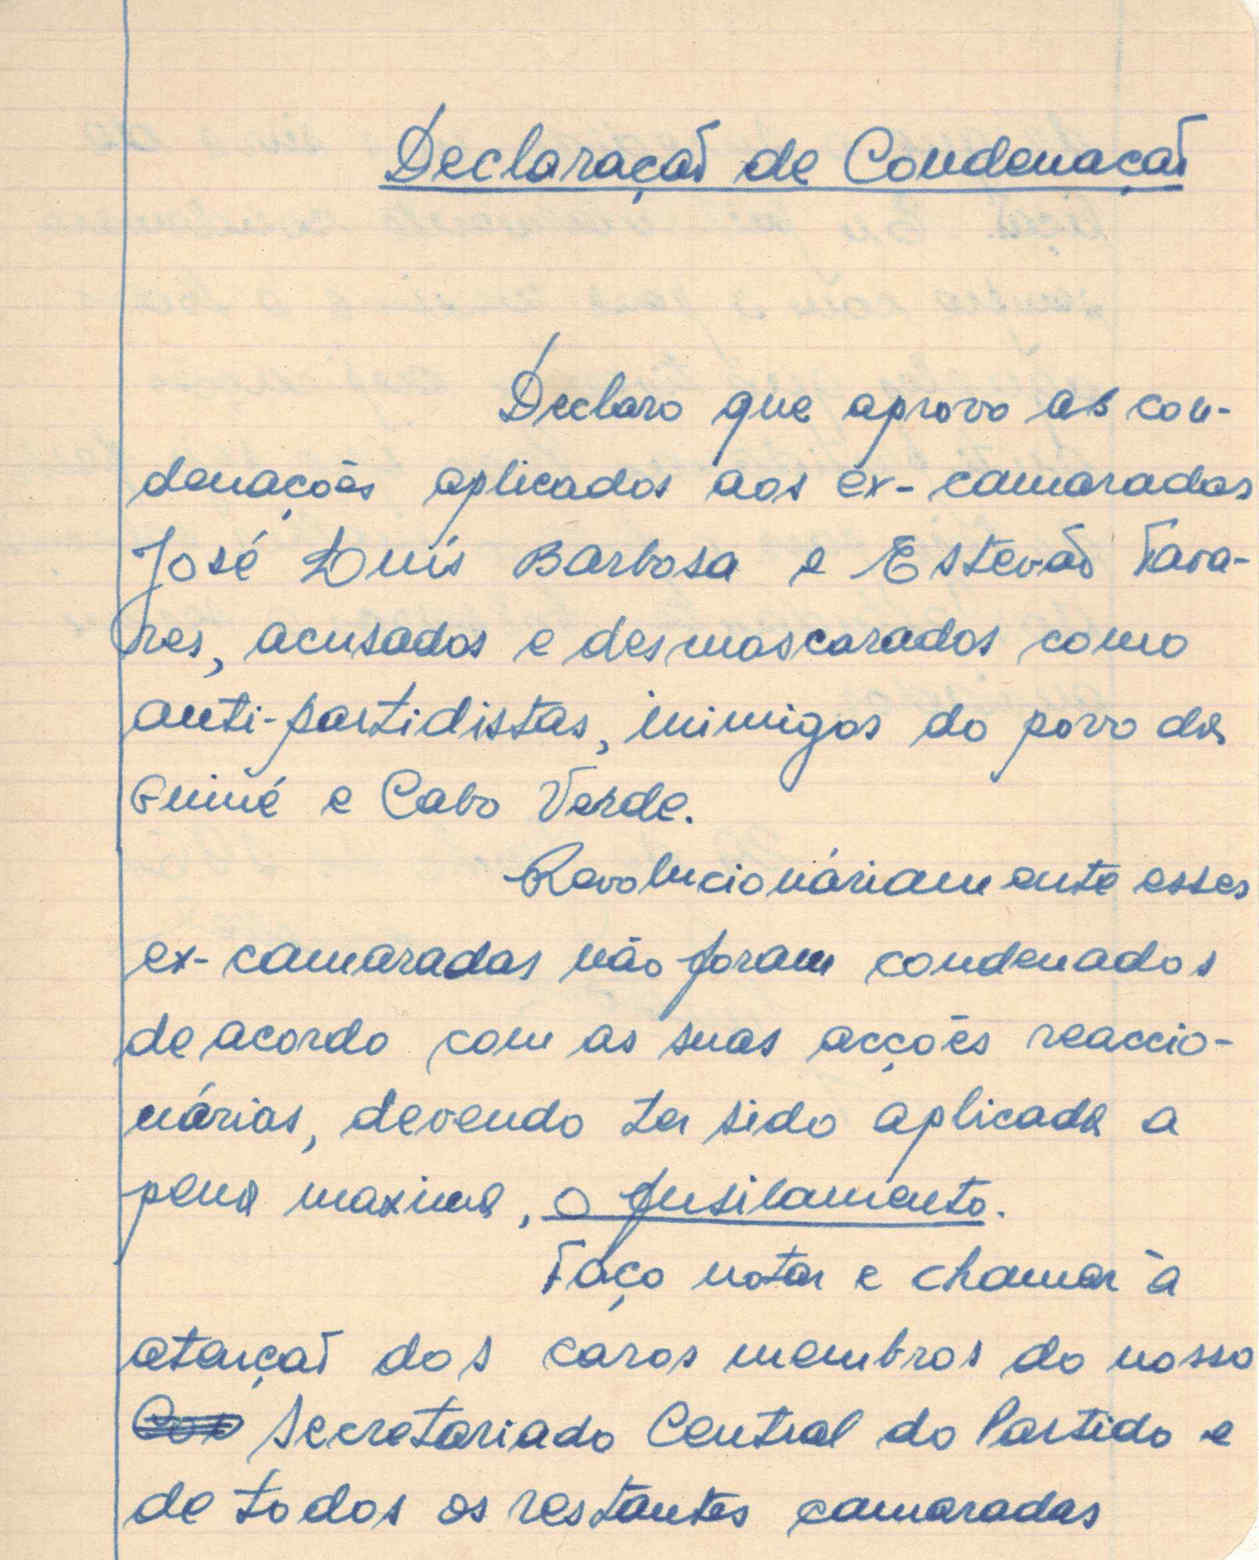 Declaração de Condenação
Declaro que aprovo as con-
denações aplicados aos ex-camaradas
José Luís Barbosa e Estevão Tava-
res, acusados e desmascarados como
anti-partidistas, inimigos do povo da
Guiné e Cabo Verde.
Revolucionáriamente esses
ex-camaradas não foram condenados
de acordo com as suas acções reaccio-
nárias, devendo ter sido aplicada a
pena maxima, o fusilamento.
Faço notar e chamar à
atenção dos caros membros do nosso
Secretariado Central do Partido e
de todos os restantes camaradas